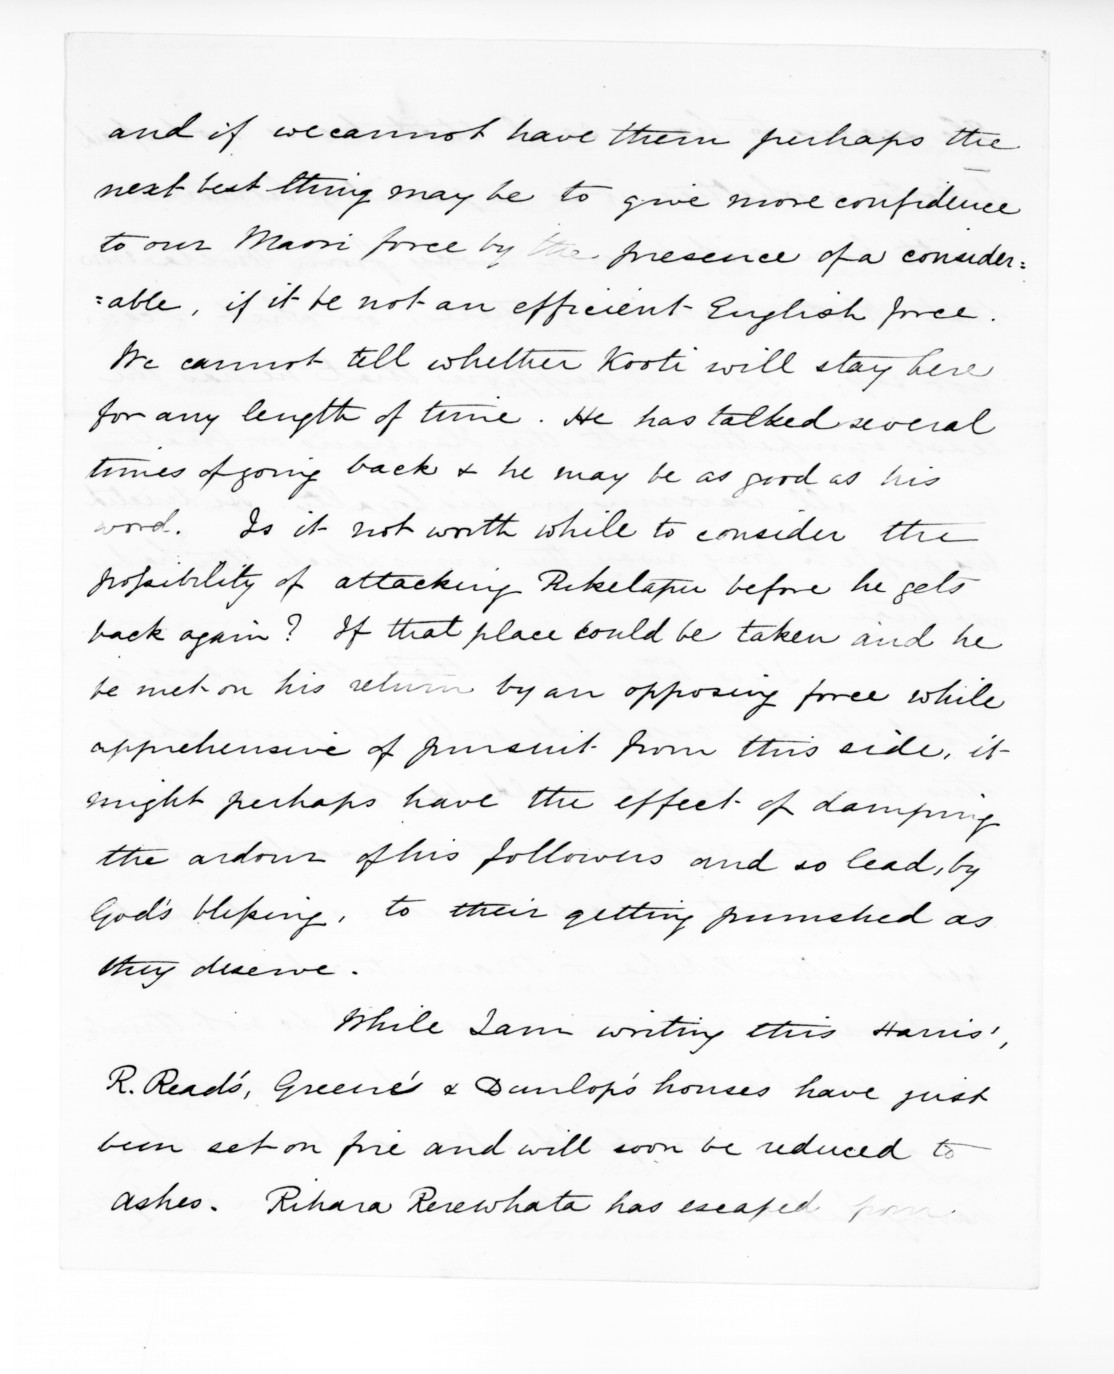 and if we cannot have them perhaps the
next best thing may be to give more confidence
to our Maori force by the presence of a consider=
=able, if it be not an efficient English force.
We cannot tell whether Kooti will stay here
for any length of time. He has talked several
times of going back & he may be as good as his
word. Is it not worth while to consider the
possibility of attacking Puketapu before he gets
back again? If that place could be taken and he
be met on his return by an opposing force while
apprehensive of pursuit from this side, it
might perhaps have the effect of damping
the ardour of his followers and so lead, by
God's blessing, to their getting punished as
they deserve.
While I am writing this Harris',
R. Read's, Greene's & Dunlop's houses have just
been set on fire and will soon be reduced to
ashes. Rihara Rerewhata has escaped from